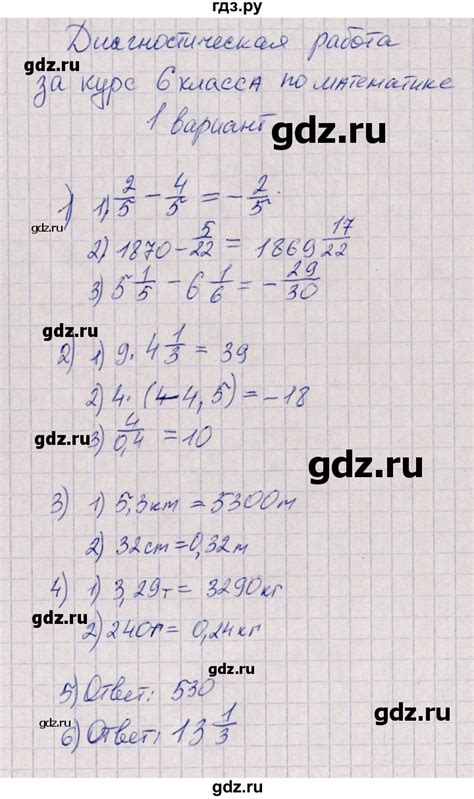 гдз.ру
Диагностическая работа
за курс 6 класса по математике
1 вариант
gdz.ru
gdz.ru
1) 1) 2/5 - 4/5 = -2/5.
gdz.ru
2) 1870 - 5/22 = 1869 17/22
3) 5 1/5 - 6 1/6 = -29/30
gdz.ru
gdz.ru
2) 1) 9 · 4 1/3 = 39
2) 4 · (-4,5) = -18
gdz.ru
3) 4/0,4 = 10
gdz.ru
3) 1) 5,3км = 5300м
2) 32см = 0,32м
4) 1) 3,29т = 3290кг
gdz.ru
2) 240г = 0,24кг
5) Ответ: 530
gdz.ru
gdz.ru
6) Ответ: 13 1/3
gdz.ru